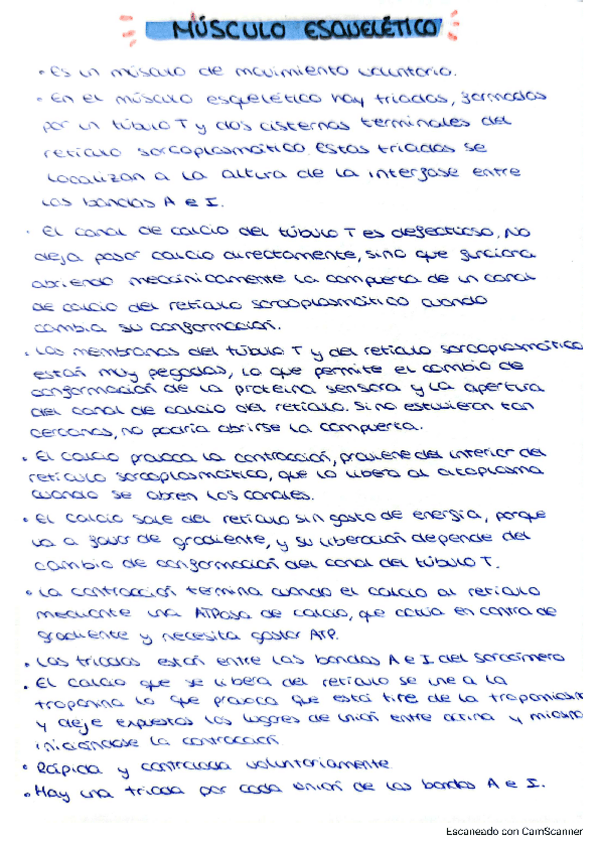 MÚSCULO ESQUELÉTICO
• Es un músculo de movimiento voluntario.
• En el músculo esquelético hay triadas, formadas
por un túbulo T y dos cisternas terminales del
retículo sarcoplasmático. Estas triadas se
localizan a la altura de la interfase entre
las bandas A e I.
• El canal de calcio del túbulo T es defectuoso, No
deja pasar calcio directamente, sino que funciona
abriendo mecánicamente la compuerta de un canal
de calcio del retículo sarcoplasmático cuando
cambia su conformación.
• Las membranas del túbulo T y del retículo sarcoplasmático
están muy pegadas, lo que permite el cambio de
conformación de la proteína sensora y la apertura
del canal de calcio del retículo. Si no estuvieran tan
cercanas, no podría abrirse la compuerta.
• El calcio provoca la contracción, proviene del interior del
retículo sarcoplasmático, que lo libera al citoplasma
cuando se abren los canales.
• El calcio sale del retículo sin gasto de energía, porque
va a favor de gradiente, y su liberación depende del
cambio de conformación del canal del túbulo T.
• La contracción termina cuando el calcio al retículo
mediante una ATPasa de calcio, que actúa en contra de
gradiente y necesita gastar ATP.
• Las triadas están entre las bandas A e I del sarcómero
• El calcio que se libera del retículo se une a la
troponina lo que provoca que está tire de la tropomiosin
y deje expuestos los lugares de unión entre actina y miosina
iniciándose la contracción
• Rápida y controlada voluntariamente
• Hay una triada por cada unión de las bandas A e I.
Escaneado con CamScanner